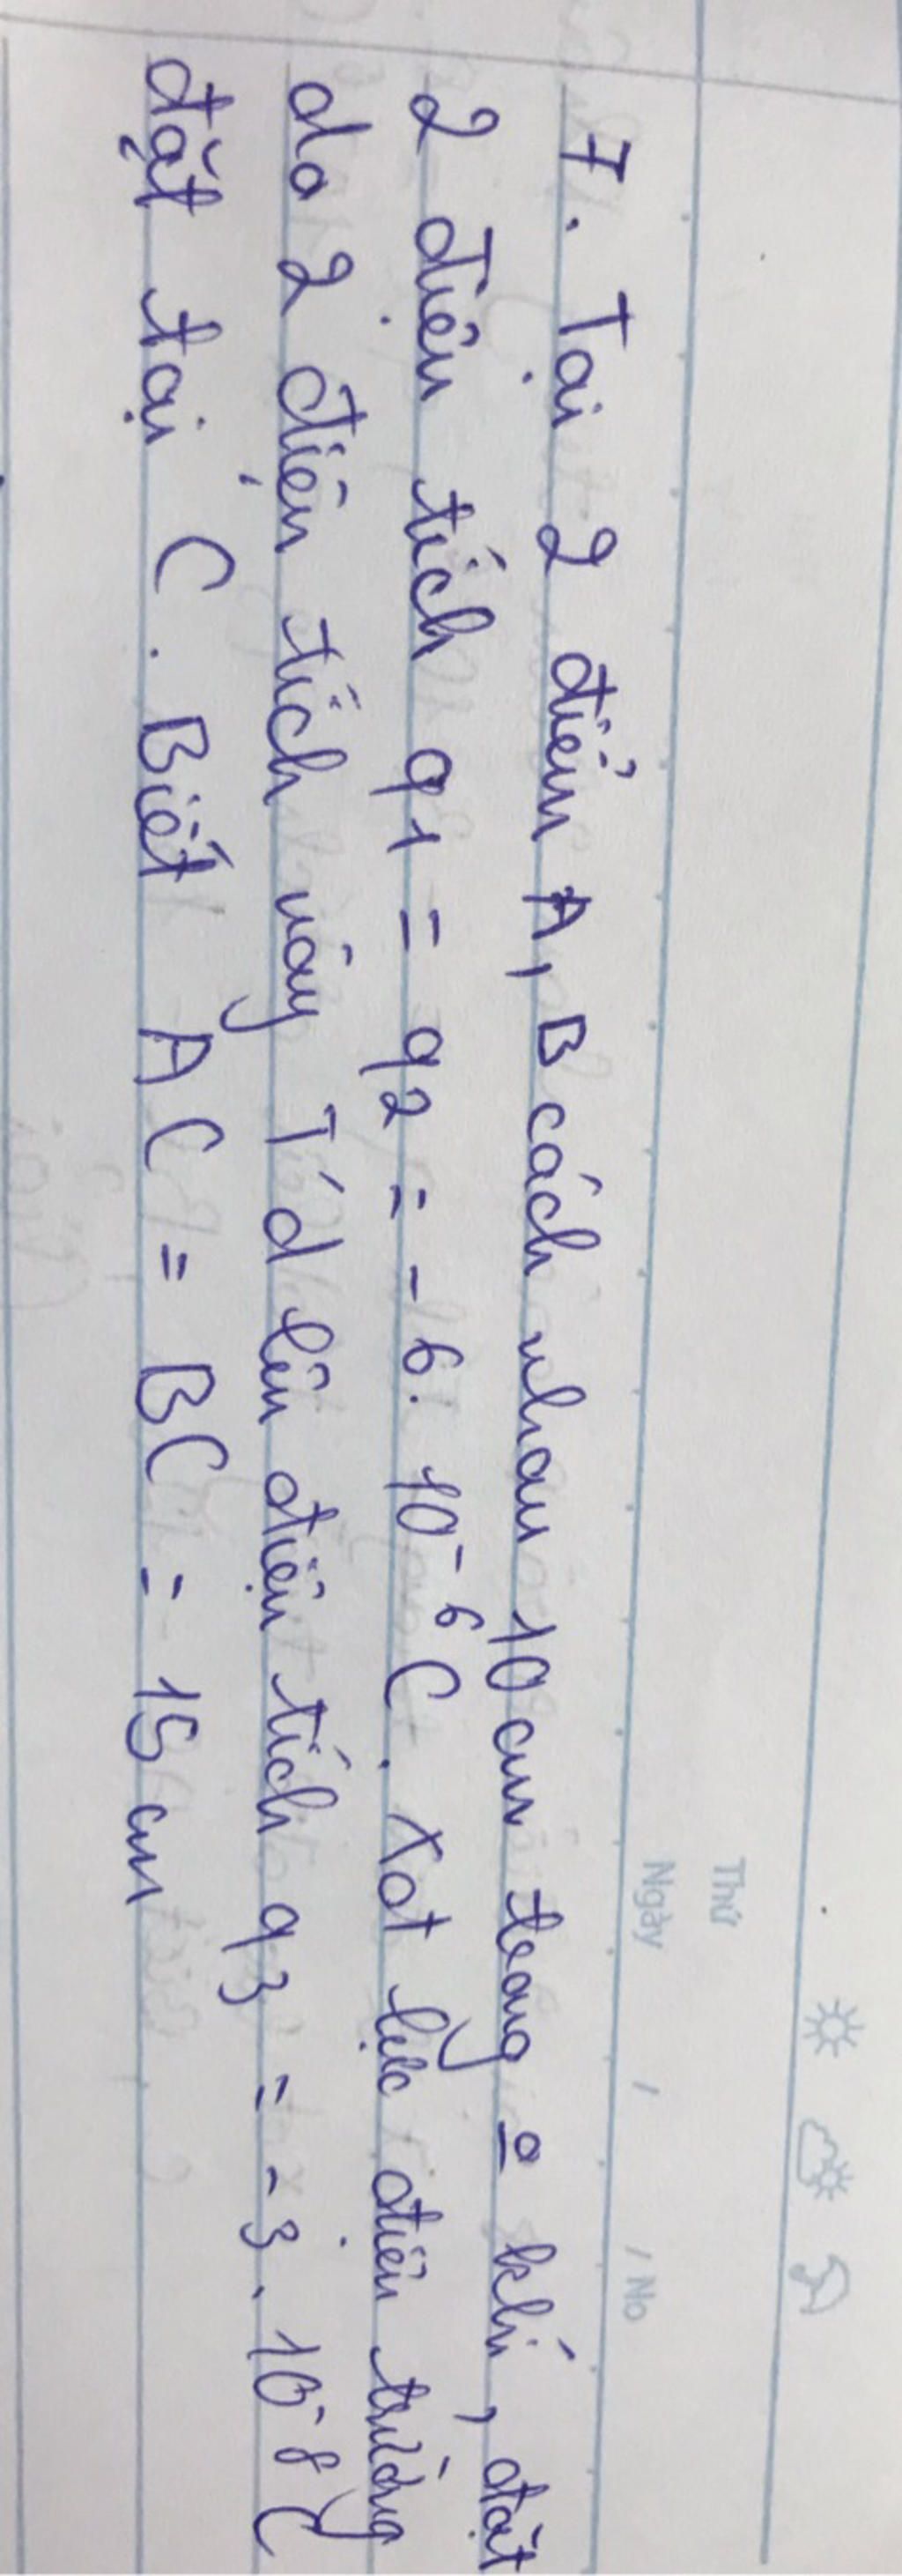 Thứ
Ngày / / No
7. Tại 2 điểm A, B cách nhau 10 cm trong o khí, đặt
2 điện tích q1 = q2 = - 6. 10⁻⁶ C. Xđt lực điện trường
do 2 điện tích này T/d lên điện tích q3 = - 3. 10⁻⁸ C
đặt tại C. Biết AC = BC = 15 cm